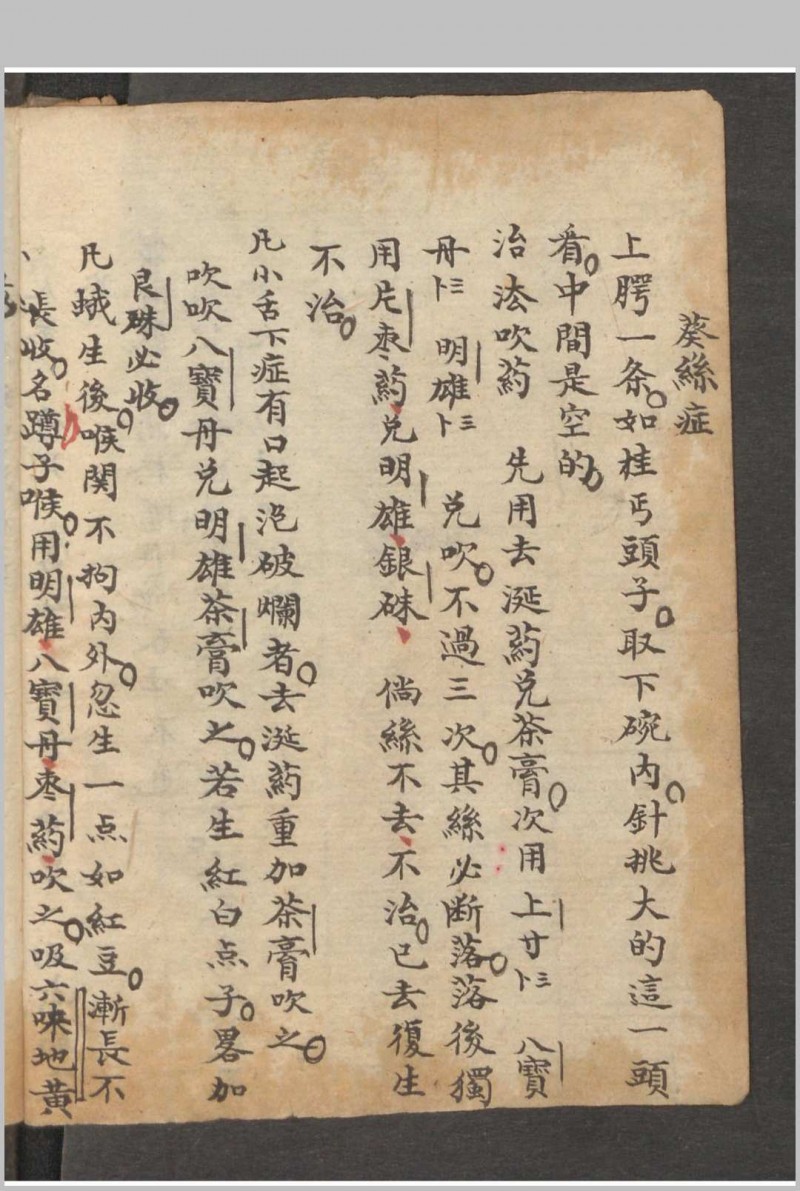 葵絲症
上腭一条如桂丐頭子取下碗内針挑大的這一頭
看中間是空的
治法吹葯 先用去涎葯兑茶膏次用上廿卜三 八寶
丹卜三 明雄卜三 兑吹不過三次其絲必断落落後獨
用片枣葯兑明雄銀硃 倘絲不去不治已去復生
不治
凡小舌下症有口起泡破爛者去涎葯重加茶膏吹之
吹吹八寶丹兑明雄茶膏吹之若生紅白点子畧加
艮硃必收
凡蛾生後喉関不拘内外忽生一点如紅豆漸長不
長收名蹲子喉用明雄八寶丹枣葯吹之吸六味地黄